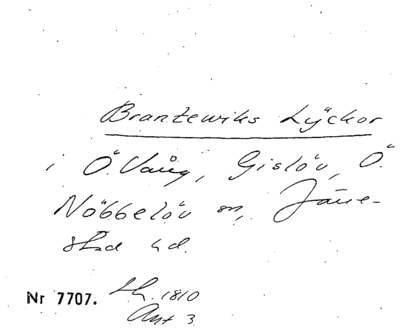 Brantewiks Lÿckor
i Ö. Vång, Gislöv, Ö.
Nöbbelöv sn, Järre-
stad hd.
Nr 7707. 1810
Akt 3.